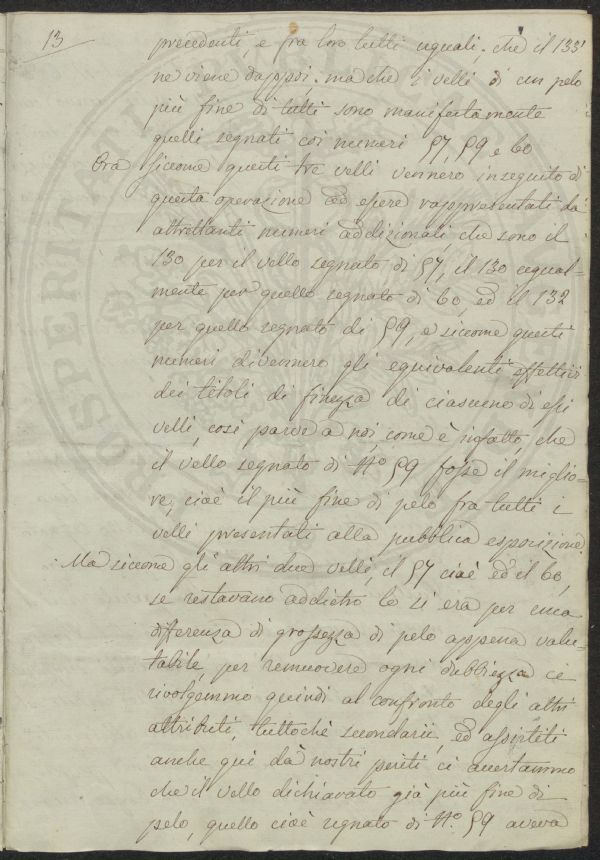 13
precedenti, e fra loro tutti uguali, che il 133
ne viene dappoi; ma che i velli di un pelo
più fine di tutti sono manifestamente
quelli segnati coi numeri 57, 59 e 60
Ora siccome questi tre velli vennero in seguito di
questa operazione ad essere rappresentati da
altrettanti numeri addizionali che sono il
130 per il vello segnato di 57, il 130 egual-
mente per quello segnato di 60, ed il 132
per quello segnato di 59, e siccome questi
numeri divennero gli equivalenti effettivi
dei titoli di finezza di ciascuno di essi
velli, così parve a noi, come è infatto, che
il vello segnato di No 59 fosse il miglio-
re, cioè il più fine di pelo fra tutti i
velli presentati alla pubblica esposizione.
Ma siccome gli altri due velli, il 57 cioè ed il 60,
se restavano addietro lo si era per una
differenza di grossezza di pelo appena valu-
tabile, per remuovere ogni dubbiezza ci
rivolgemmo quindi al confronto degli altri
attributi, tuttochè secondarii, ed assistiti
anche qui dà nostri periti ci accertammo
che il vello dichiarato già più fine di
pelo, quello cioè segnato di No. 59 aveva
PROSPERITATI PUBLICAE